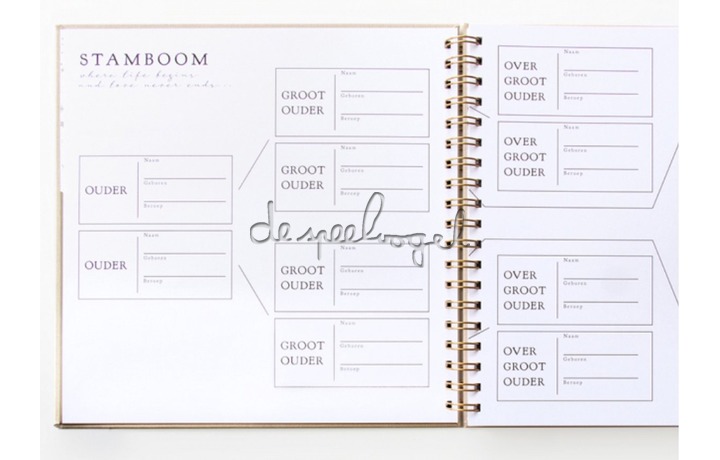 STAMBOOM
where life begins
and love never ends...
OUDER
Naam
Geboren
Beroep
OUDER
Naam
Geboren
Beroep
GROOT
OUDER
Naam
Geboren
Beroep
GROOT
OUDER
Naam
Geboren
Beroep
GROOT
OUDER
Naam
Geboren
Beroep
GROOT
OUDER
Naam
Geboren
Beroep
despeelvogel
OVER
GROOT
OUDER
Naam
Geboren
Beroep
OVER
GROOT
OUDER
Naam
Geboren
Beroep
OVER
GROOT
OUDER
Naam
Geboren
Beroep
OVER
GROOT
OUDER
Naam
Geboren
Beroep